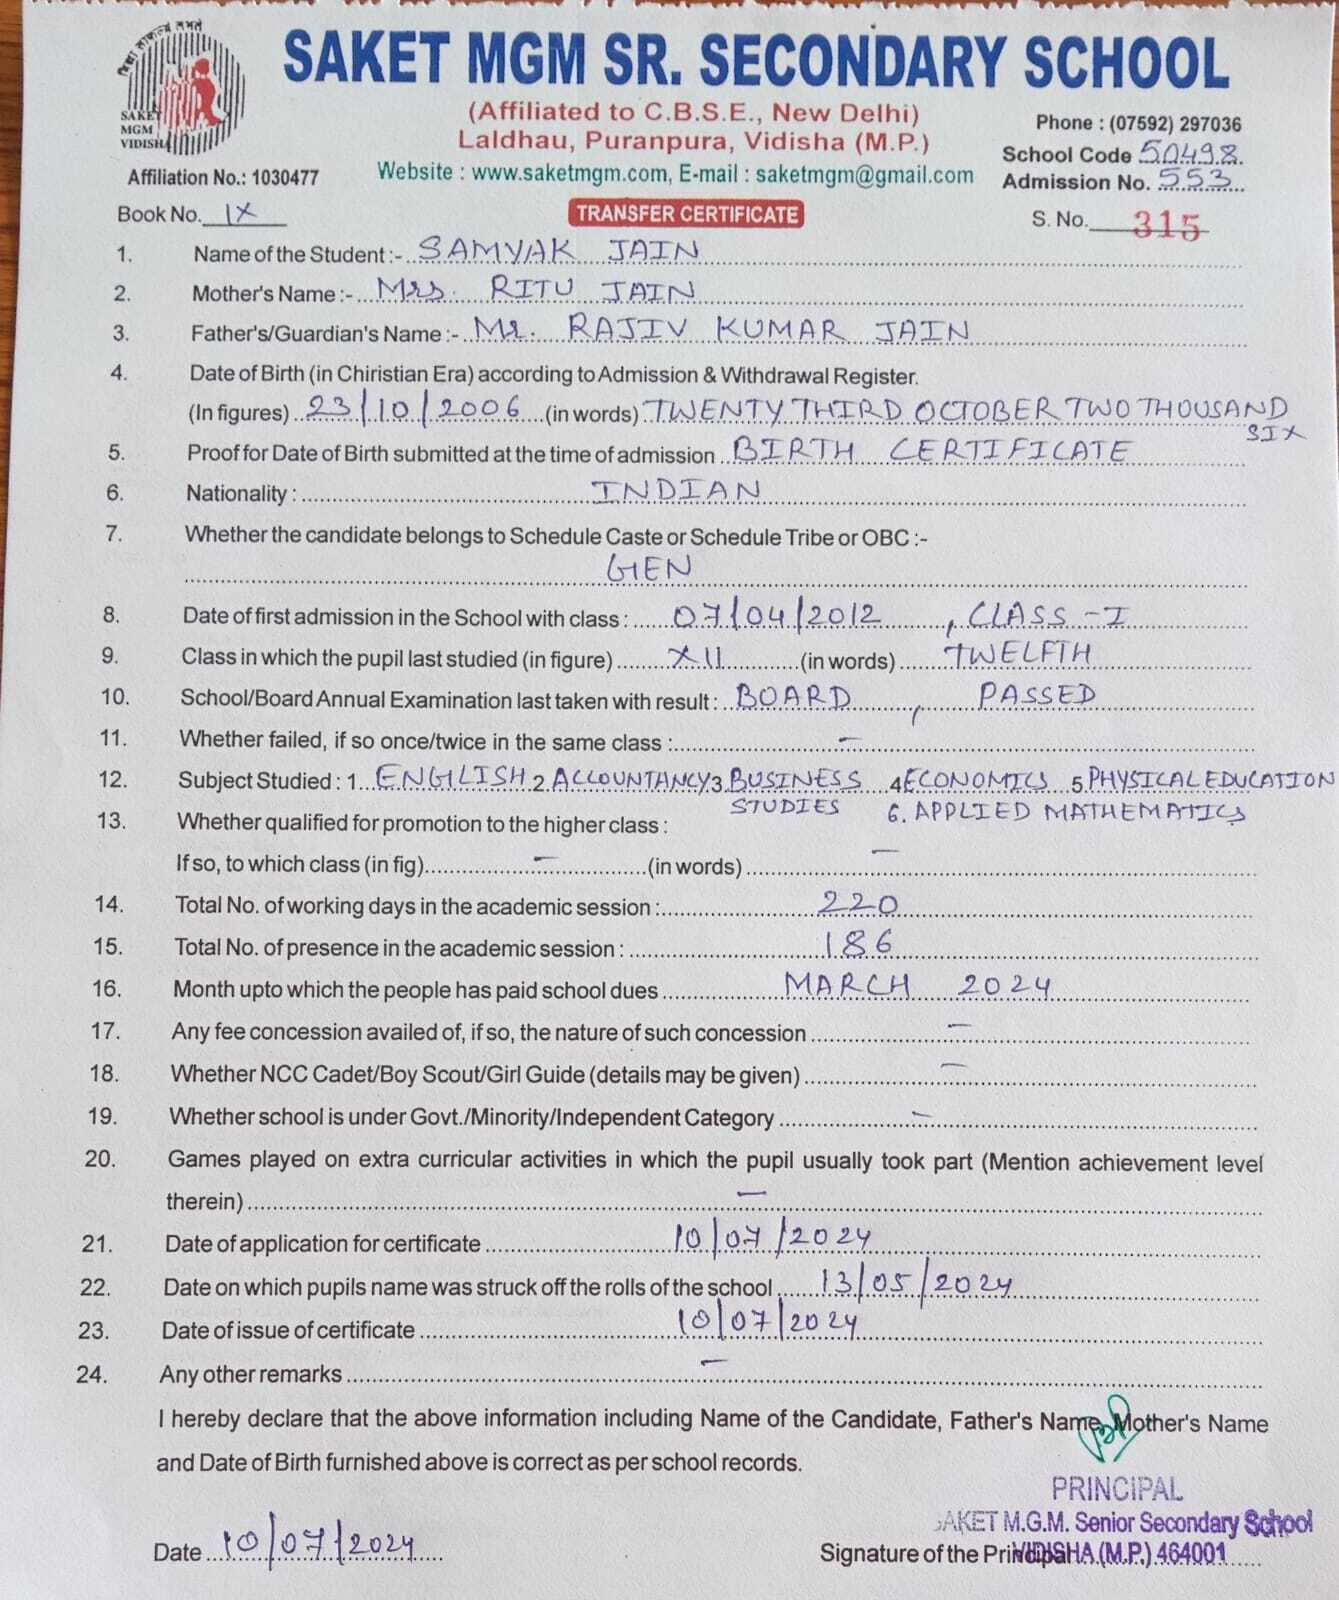 SAKET MGM SR. SECONDARY SCHOOL
(Affiliated to C.B.S.E., New Delhi)
Laldhau, Puranpura, Vidisha (M.P.)
Website : www.saketmgm.com, E-mail : saketmgm@gmail.com
SAKET
MGM
VIDISHA
Affiliation No.: 1030477
Phone : (07592) 297036
School Code 50498
Admission No. 553
Book No. IX
TRANSFER CERTIFICATE
S. No. 315
1. Name of the Student :- SAMYAK JAIN
2. Mother's Name :- Mrs. RITU JAIN
3. Father's/Guardian's Name :- Mr. RAJIV KUMAR JAIN
4. Date of Birth (in Chiristian Era) according to Admission & Withdrawal Register.
(In figures) 23/10/2006 (in words) TWENTY THIRD OCTOBER TWO THOUSAND
SIX
5. Proof for Date of Birth submitted at the time of admission BIRTH CERTIFICATE
6. Nationality : INDIAN
7. Whether the candidate belongs to Schedule Caste or Schedule Tribe or OBC :-
GEN
8. Date of first admission in the School with class : 07/04/2012, CLASS - I
9. Class in which the pupil last studied (in figure) XII (in words) TWELFTH
10. School/Board Annual Examination last taken with result : BOARD, PASSED
11. Whether failed, if so once/twice in the same class : –
12. Subject Studied : 1. ENGLISH 2 ACCOUNTANCY 3 BUSINESS 4 ECONOMICS 5 PHYSICAL EDUCATION
STUDIES 6. APPLIED MATHEMATICS
13. Whether qualified for promotion to the higher class :
If so, to which class (in fig) – (in words) –
14. Total No. of working days in the academic session : 220
15. Total No. of presence in the academic session : 186
16. Month upto which the people has paid school dues MARCH 2024
17. Any fee concession availed of, if so, the nature of such concession –
18. Whether NCC Cadet/Boy Scout/Girl Guide (details may be given) –
19. Whether school is under Govt./Minority/Independent Category –
20. Games played on extra curricular activities in which the pupil usually took part (Mention achievement level
therein) –
21. Date of application for certificate 10/07/2024
22. Date on which pupils name was struck off the rolls of the school 13/05/2024
23. Date of issue of certificate 10/07/2024
24. Any other remarks –
I hereby declare that the above information including Name of the Candidate, Father's Name, Mother's Name
and Date of Birth furnished above is correct as per school records.
PRINCIPAL
SAKET M.G.M. Senior Secondary School
VIDISHA (M.P.) 464001
Date 10/07/2024
Signature of the Principal